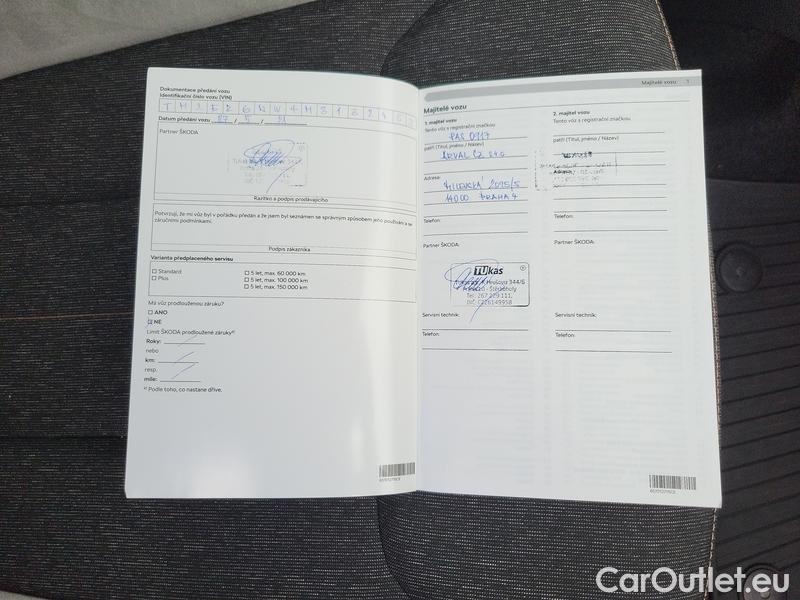 Dokumentace předání vozu
Identifikační číslo vozu (VIN)
Datum předání vozu 27 / 5 / 21
Partner ŠKODA
Razítko a podpis prodávajícího
Potvrzuji, že mi vůz byl v pořádku předán a že jsem byl seznámen se správným způsobem jeho používání a se
záručními podmínkami.
Podpis zákazníka
Varianta předplaceného servisu
Standard
Plus
5 let, max. 60 000 km
5 let, max. 100 000 km
5 let, max. 150 000 km
Má vůz prodlouženou záruku?
ANO
NE
Limit ŠKODA prodloužené záruky a)
Roky:
nebo
km:
resp.
míle:
a) Podle toho, co nastane dříve.
Majitelé vozu 1
Majitelé vozu
1. majitel vozu
Tento vůz s registrační značkou
patří (Titul, jméno / Název)
ARVAL CZ s.r.o.
Adresa:
14000 PRAHA 4
Telefon:
Partner ŠKODA:
TUkas
Tel.: 267 229 111,
Servisní technik:
Telefon:
2. majitel vozu
Tento vůz s registrační značkou
patří (Titul, jméno / Název)
Adresa:
Telefon:
Partner ŠKODA:
Servisní technik:
Telefon:
CarOutlet.eu